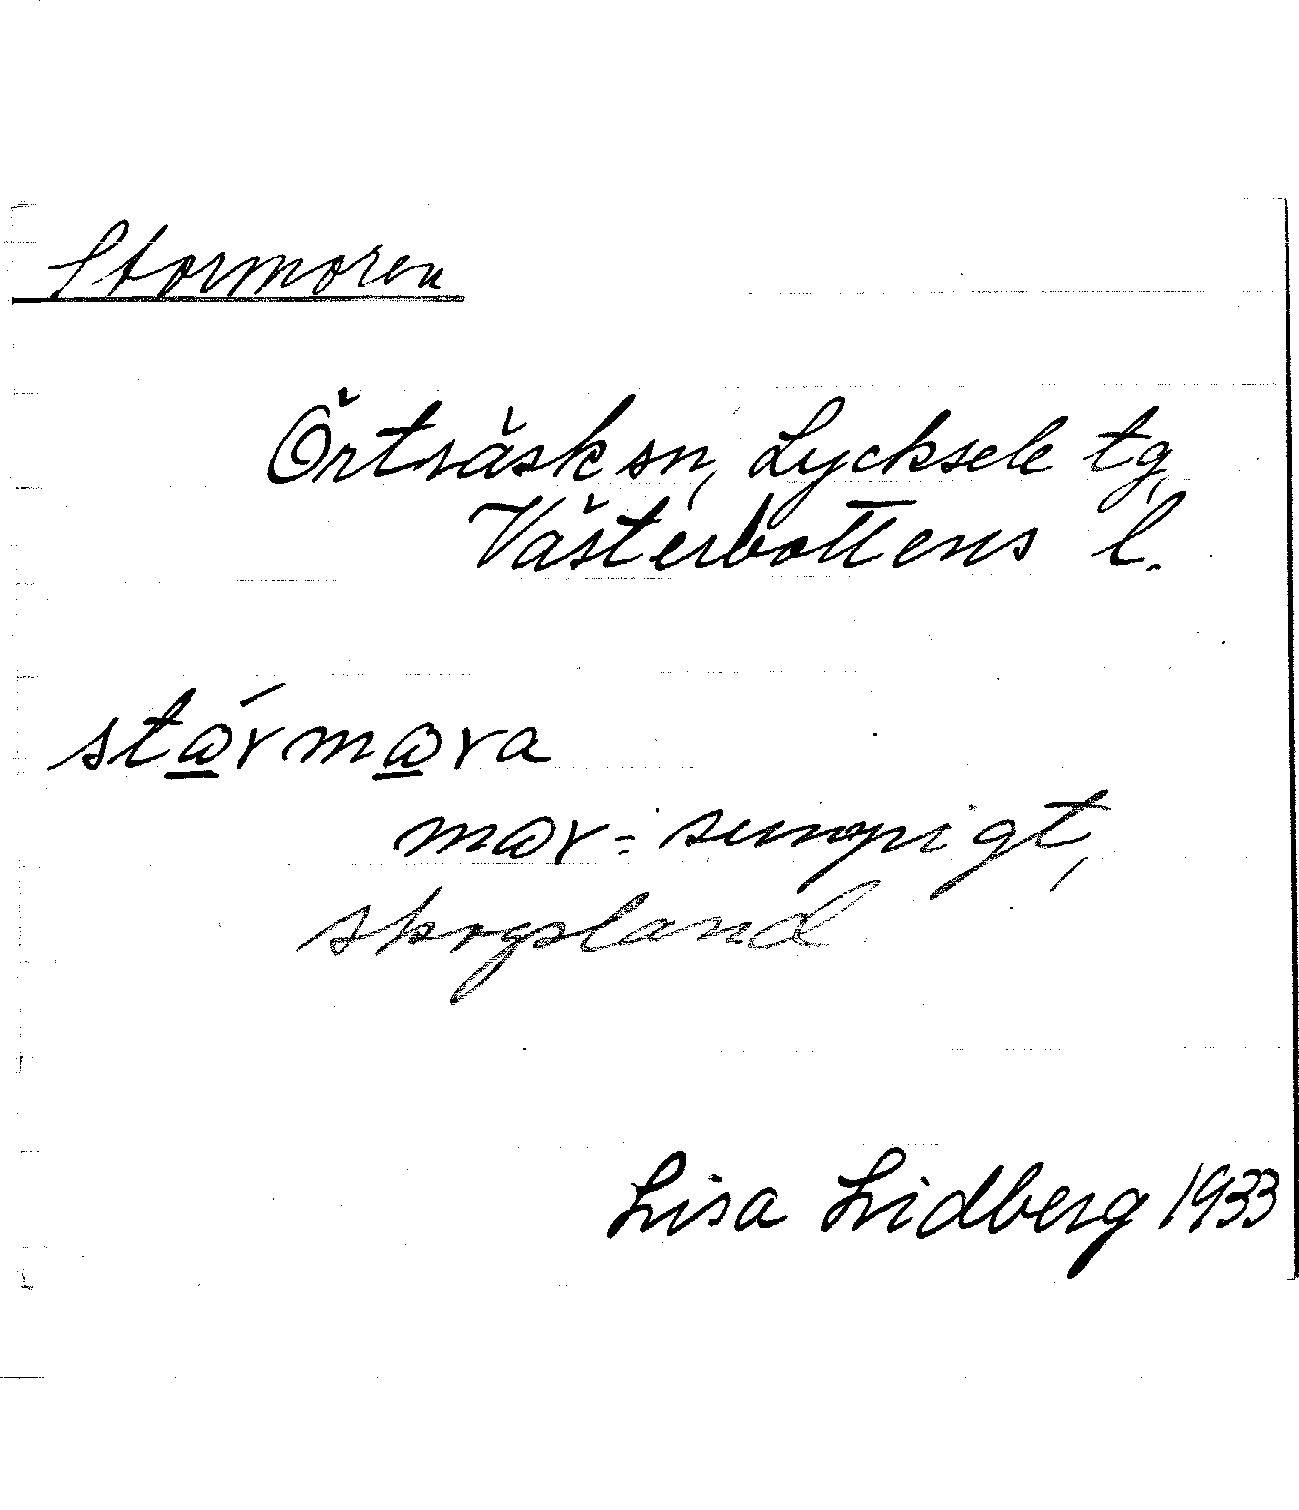 Stormoren
Örträsk sn, Lycksele tg,
Västerbottens l.
stⱺ̲́rmⱺ̲ra
mⱺr = sumpigt,
skogsland
Lisa Lidberg 1933